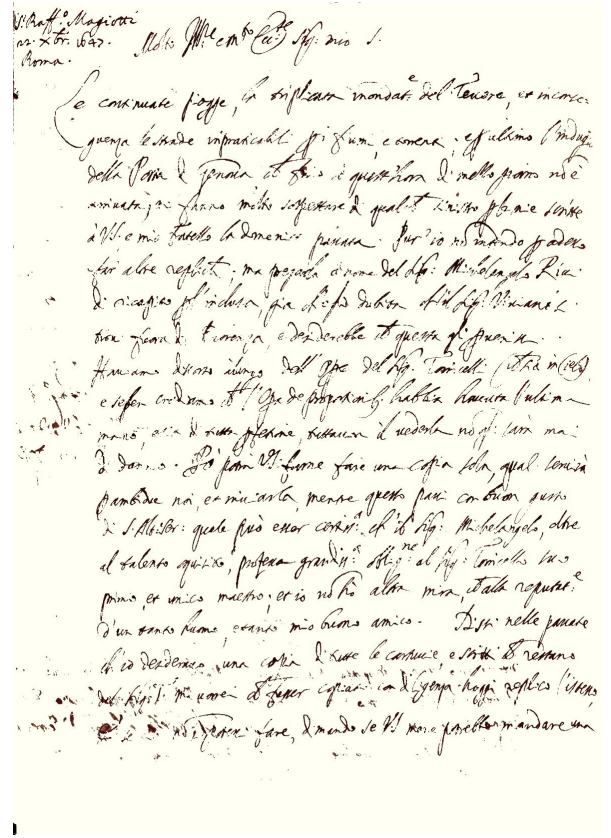 S.r Raff.o Magiotti
22. Xbr. 1647.
Roma.
Molto Ill.re et Sig.r mio
Le continuate piogge, la triplicata inondat.e del Tevere, et in conse-
guenza le strade impraticabili p fiumi, e torrenti, et p ultimo l'indugio
della Posta di Genova che fino a quest'hora di mezzo giorno nō è
arrivata, mi fanno molto sospettare di qualche sinistro p le mie scritte
à V.S. e mio fratello la domenica passata. Pur io nō mando p adesso
far altre repliche, ma pregarla à nome del Sig.r Michelangelo Ricci
di ricapito p l'inclusa, già ch'egli dubita che il Sig.r Viviani si
trovi fuora di Fiorenza, e desiderebbe che questa gli
Haviamo discorso à lungo dell' del Sig.r Torricelli (che sia in Cielo)
e sebben crediamo che l'Opa de proportionib. habbia havuta l'ultima
mano, e sia di tutta pfettione, tuttavia il vederla nō gli sarà mai
di danno. Però potrà V.S. farne fare una copia sola, qual servirà
p ambidue noi, et inviarla, mentre questo passi con buon gusto
di S. Altezza: quale può esser certiss.a ch'il Sig.r Michelangelo, oltre
al talento squisito, professa grandiss.e oblig.ne al Sig.r Torricelli suo
primo, et unico maestro, et io nō hò altra mira, che alla reputat.e
d'un tanto huomo, e tanto mio buono amico. Dissi nelle passate
ch'io desideravo una copia di tutte le cartuccie, e scritti che restano
del Sig.r copiare con diligenza. hoggi replico l'istesso,
nō fare, V.S. potrebbe mandare una